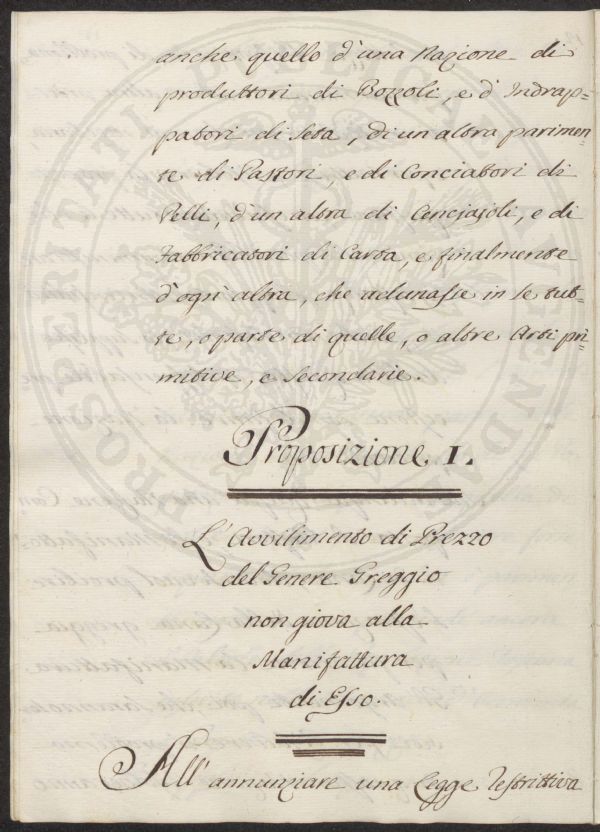 anche quello d'una Nazione di
produttori di Bozzoli, e d'Indrap=
patori di Seta, di un altra parimen=
te di Pastori, e di Conciatori di
Pelli, d'un altra di Cenciajoli, e di
Fabbricatori di Carta, e finalmente
d'ogni altra, che adunasse in se tut=
te, o parte di quelle, o altre Arti pri=
mitive, e Secondarie.
Proposizione I.
L'Avvilimento di Prezzo
del Genere Greggio
non giova alla
Manifattura
di Esso.
All'annunziare una Legge restrittiva